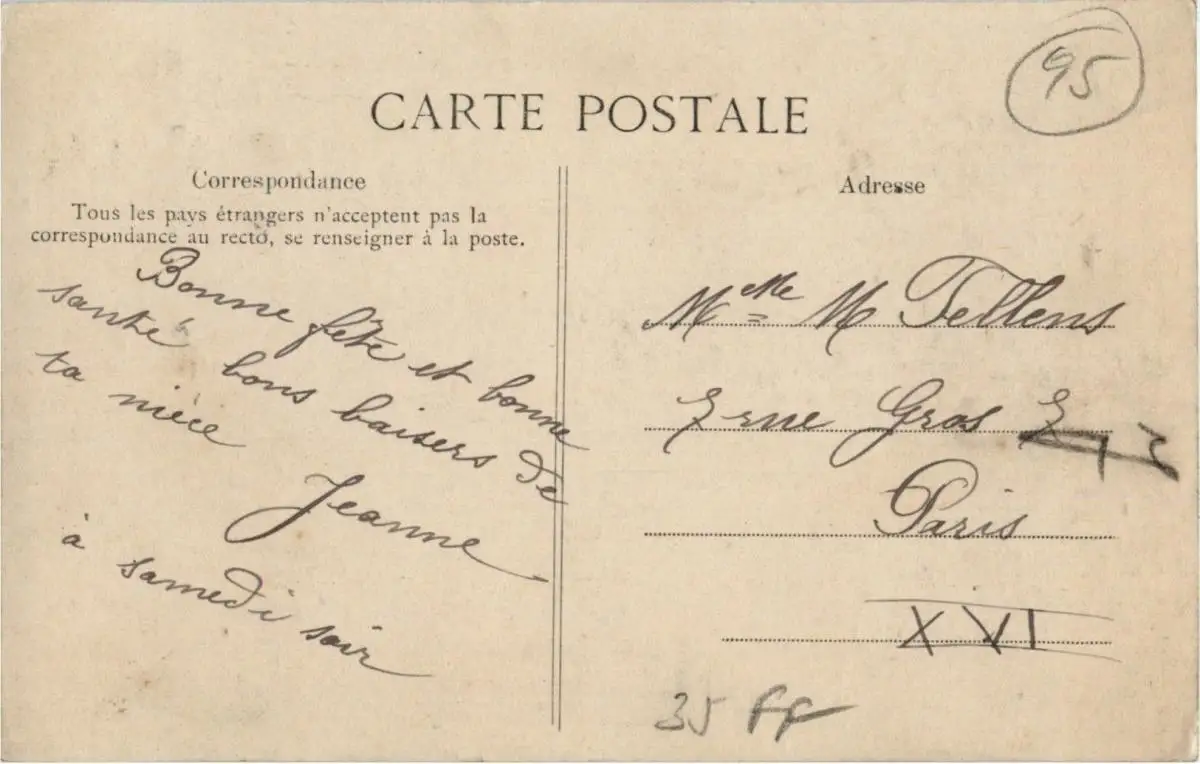 95
CARTE POSTALE
Correspondance
Tous les pays étrangers n'acceptent pas la
correspondance au recto, se renseigner à la poste.
Bonne fête et bonne
santé bons baisers de
ta nièce
Jeanne
à samedi soir
Adresse
M M Tellens
rue Gros
Paris
XVI
35 FF